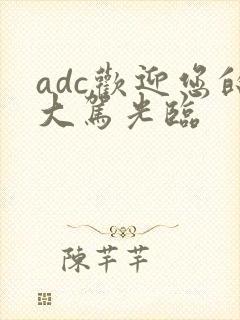 adc歡迎您的
大駕光臨
陳芊芊